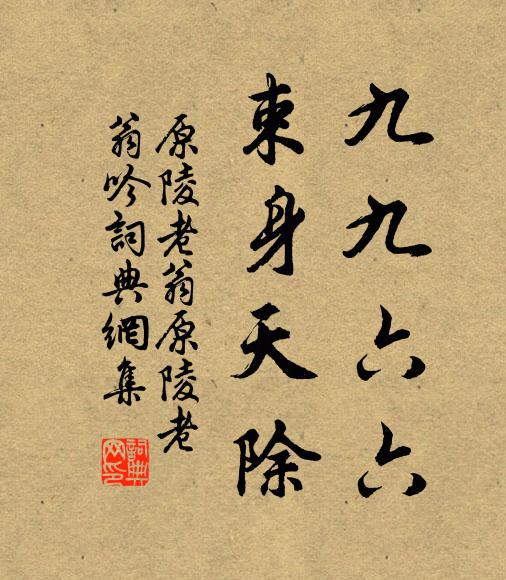 九九六六
束身天除
原陵老翁原陵老
翁吟詞典網集
詞典网印